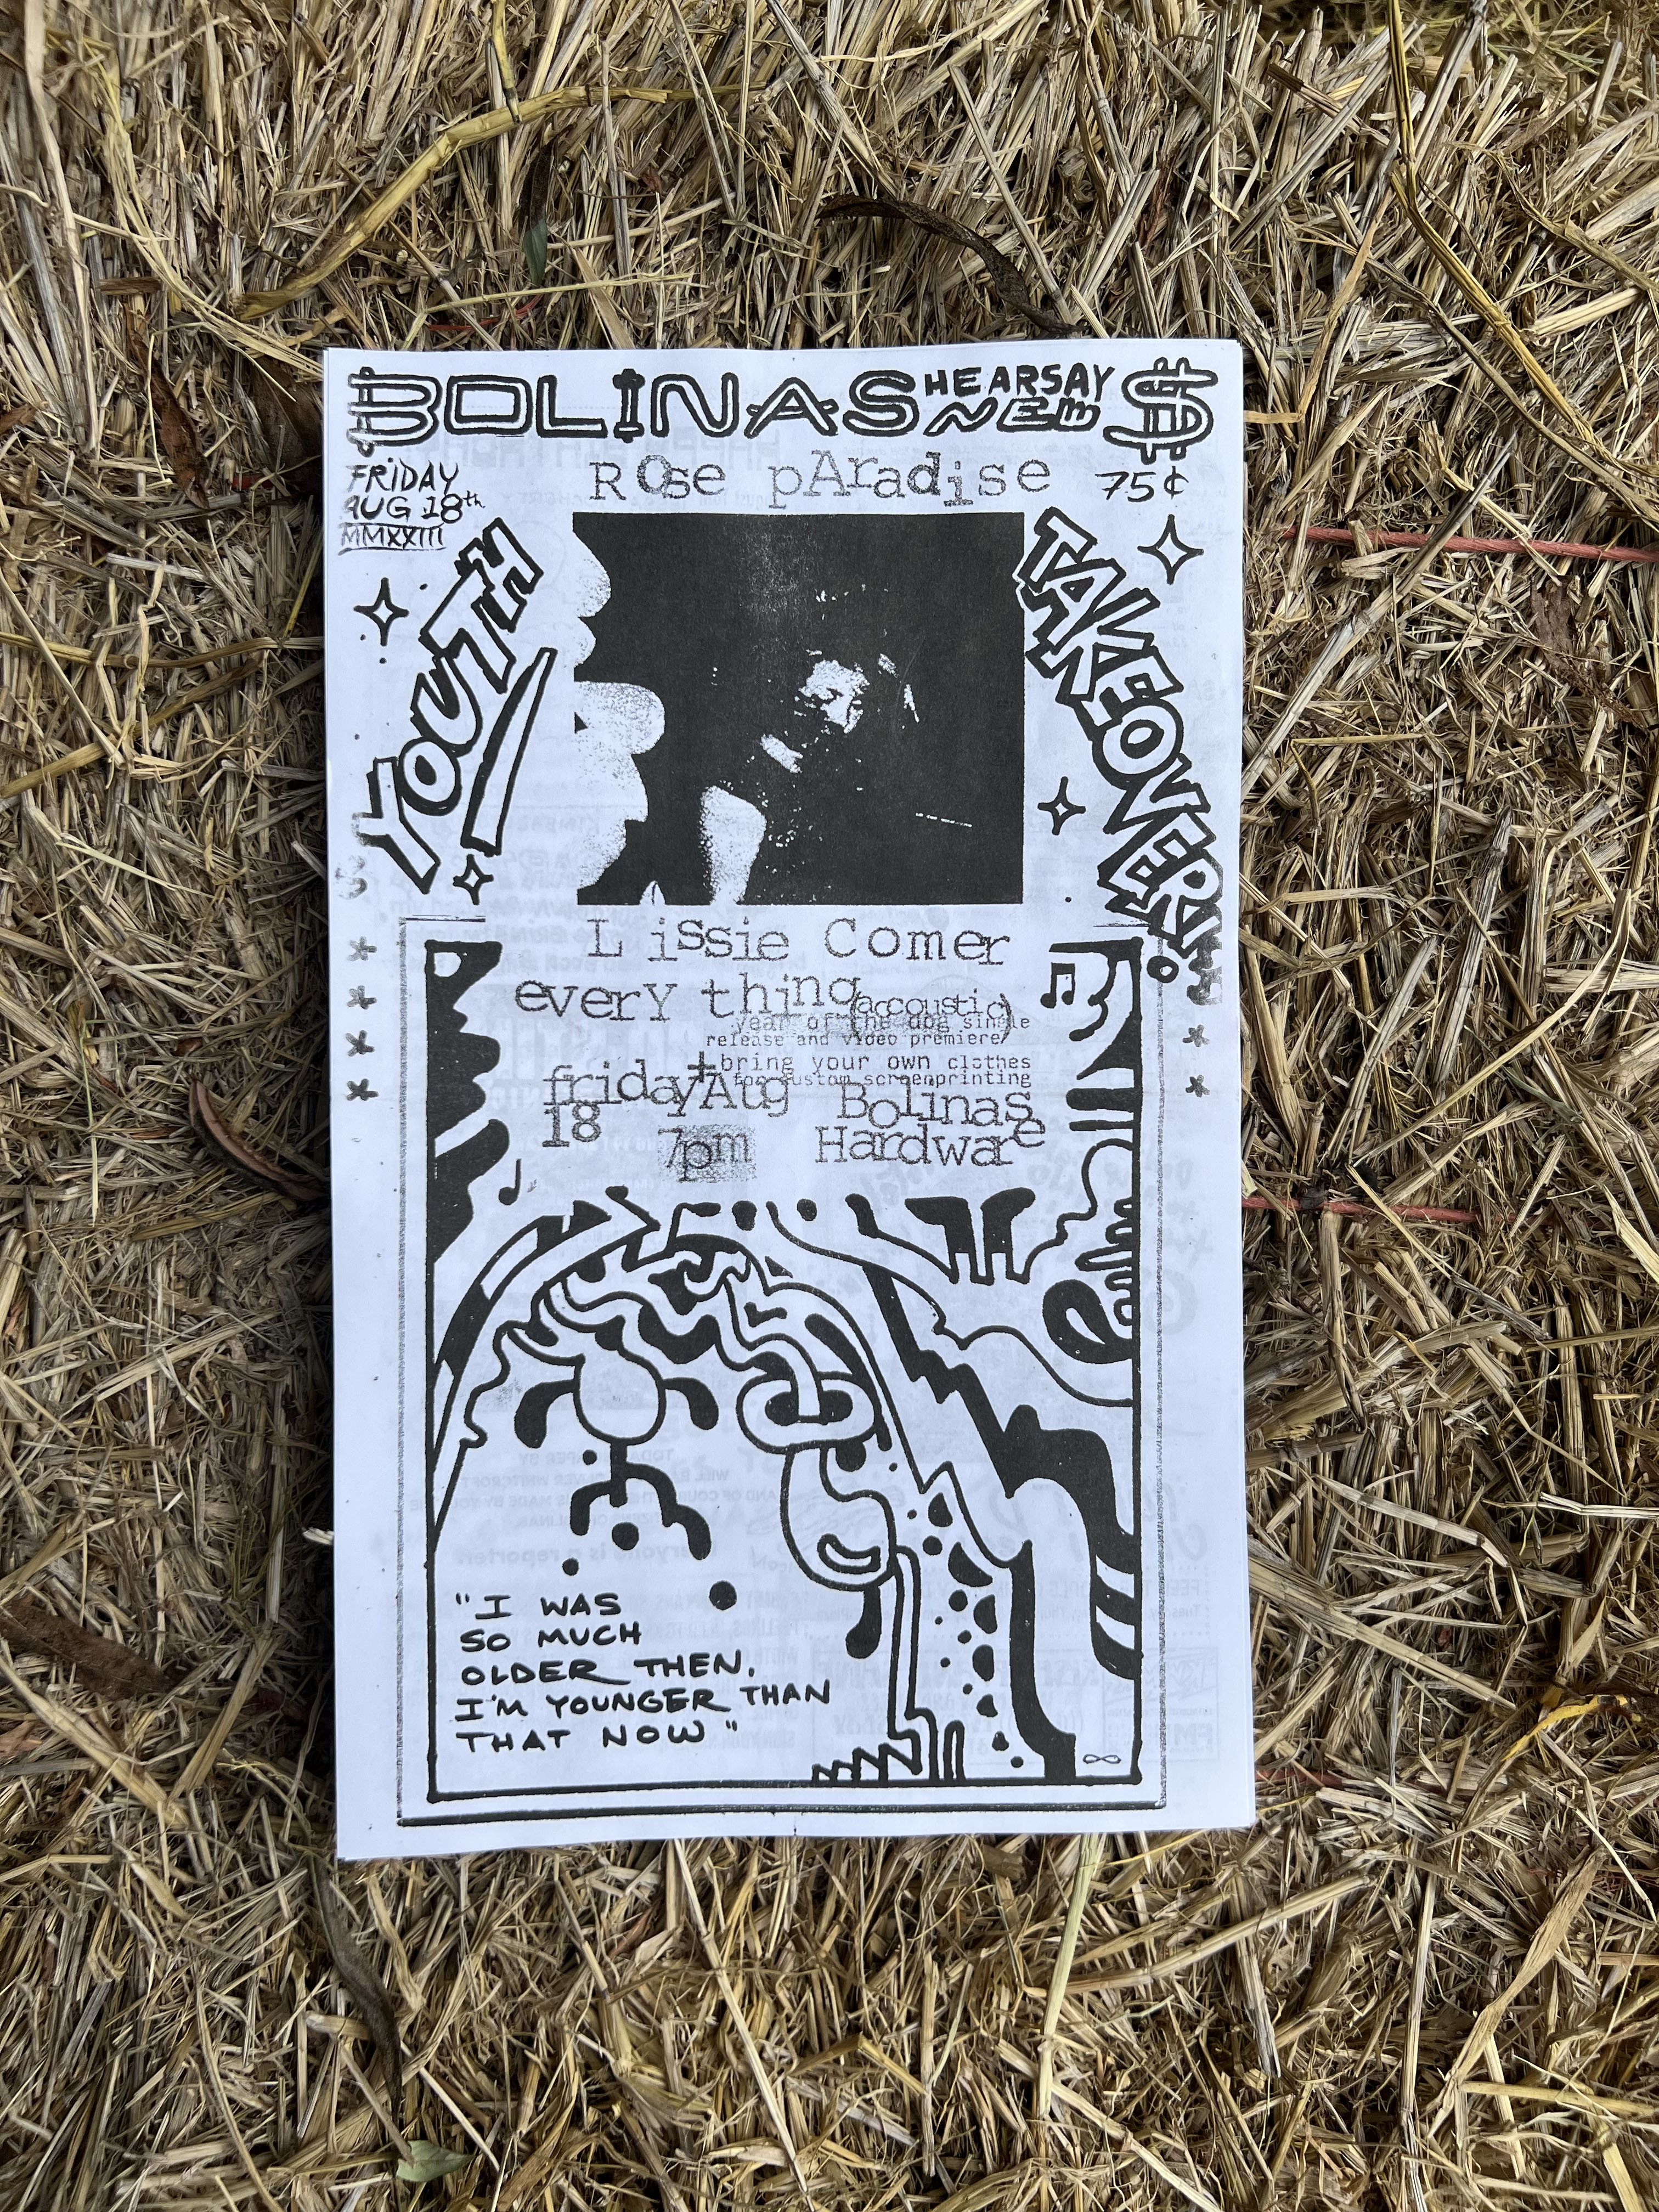 BOLINAS HEARSAY NEWS
Rose pAradise
75¢
FRiDAY
AUG 18th
MMXXIII
YOUTH
TAKEOVER!
Lissie Comer
everYthing (accoustic)
year of the dog single
release and video premiere/
+bring your own clothes
for custom screenprinting
friday Aug
18
7pm
Bolinas
Hardware
"I WAS
SO MUCH
OLDER THEN,
I'M YOUNGER THAN
THAT NOW"